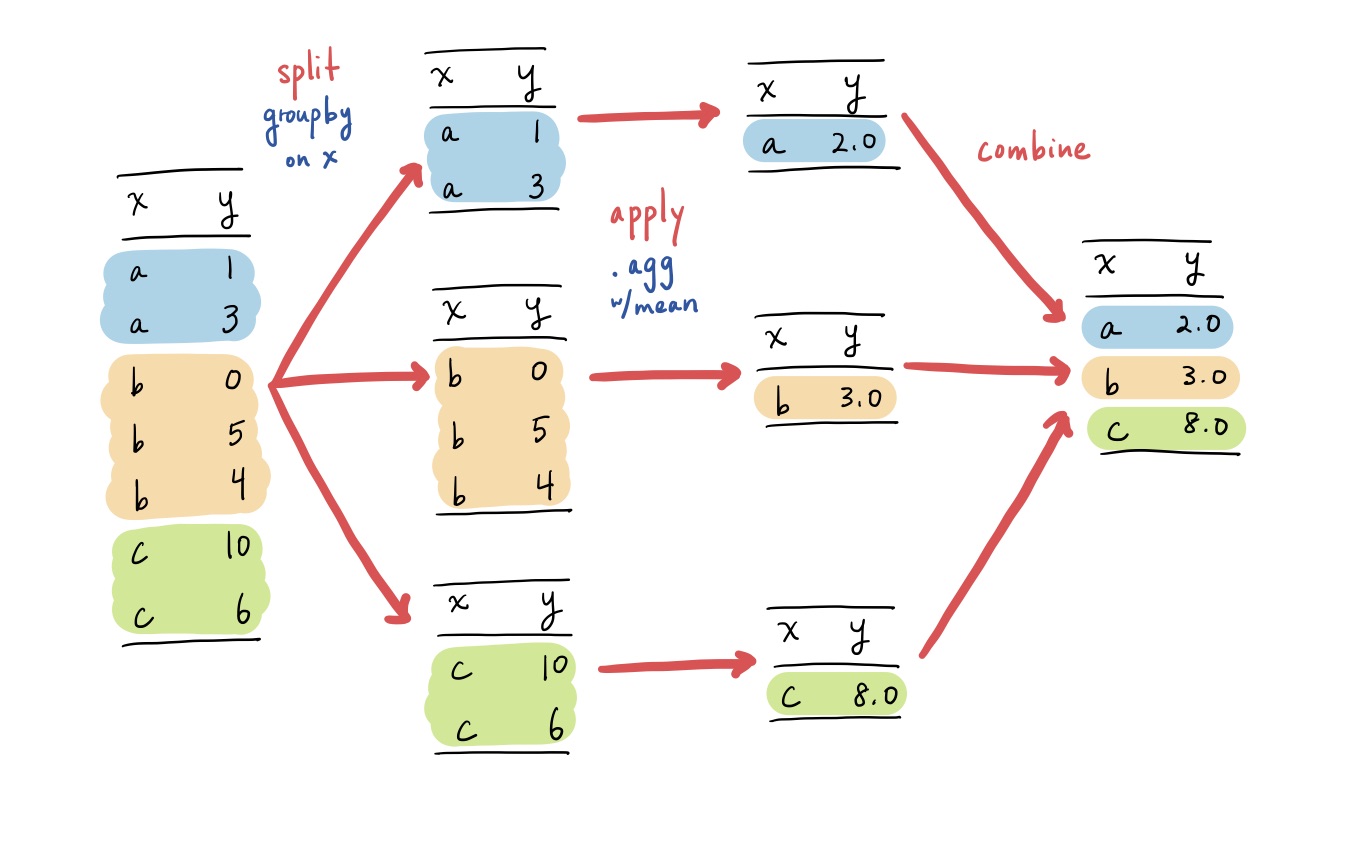 x y
a 1
a 3
b 0
b 5
b 4
c 10
c 6
split
groupby
on x
x y
a 1
a 3
x y
b 0
b 5
b 4
x y
c 10
c 6
apply
.agg
w/mean
x y
a 2.0
x y
b 3.0
x y
c 8.0
combine
x y
a 2.0
b 3.0
c 8.0